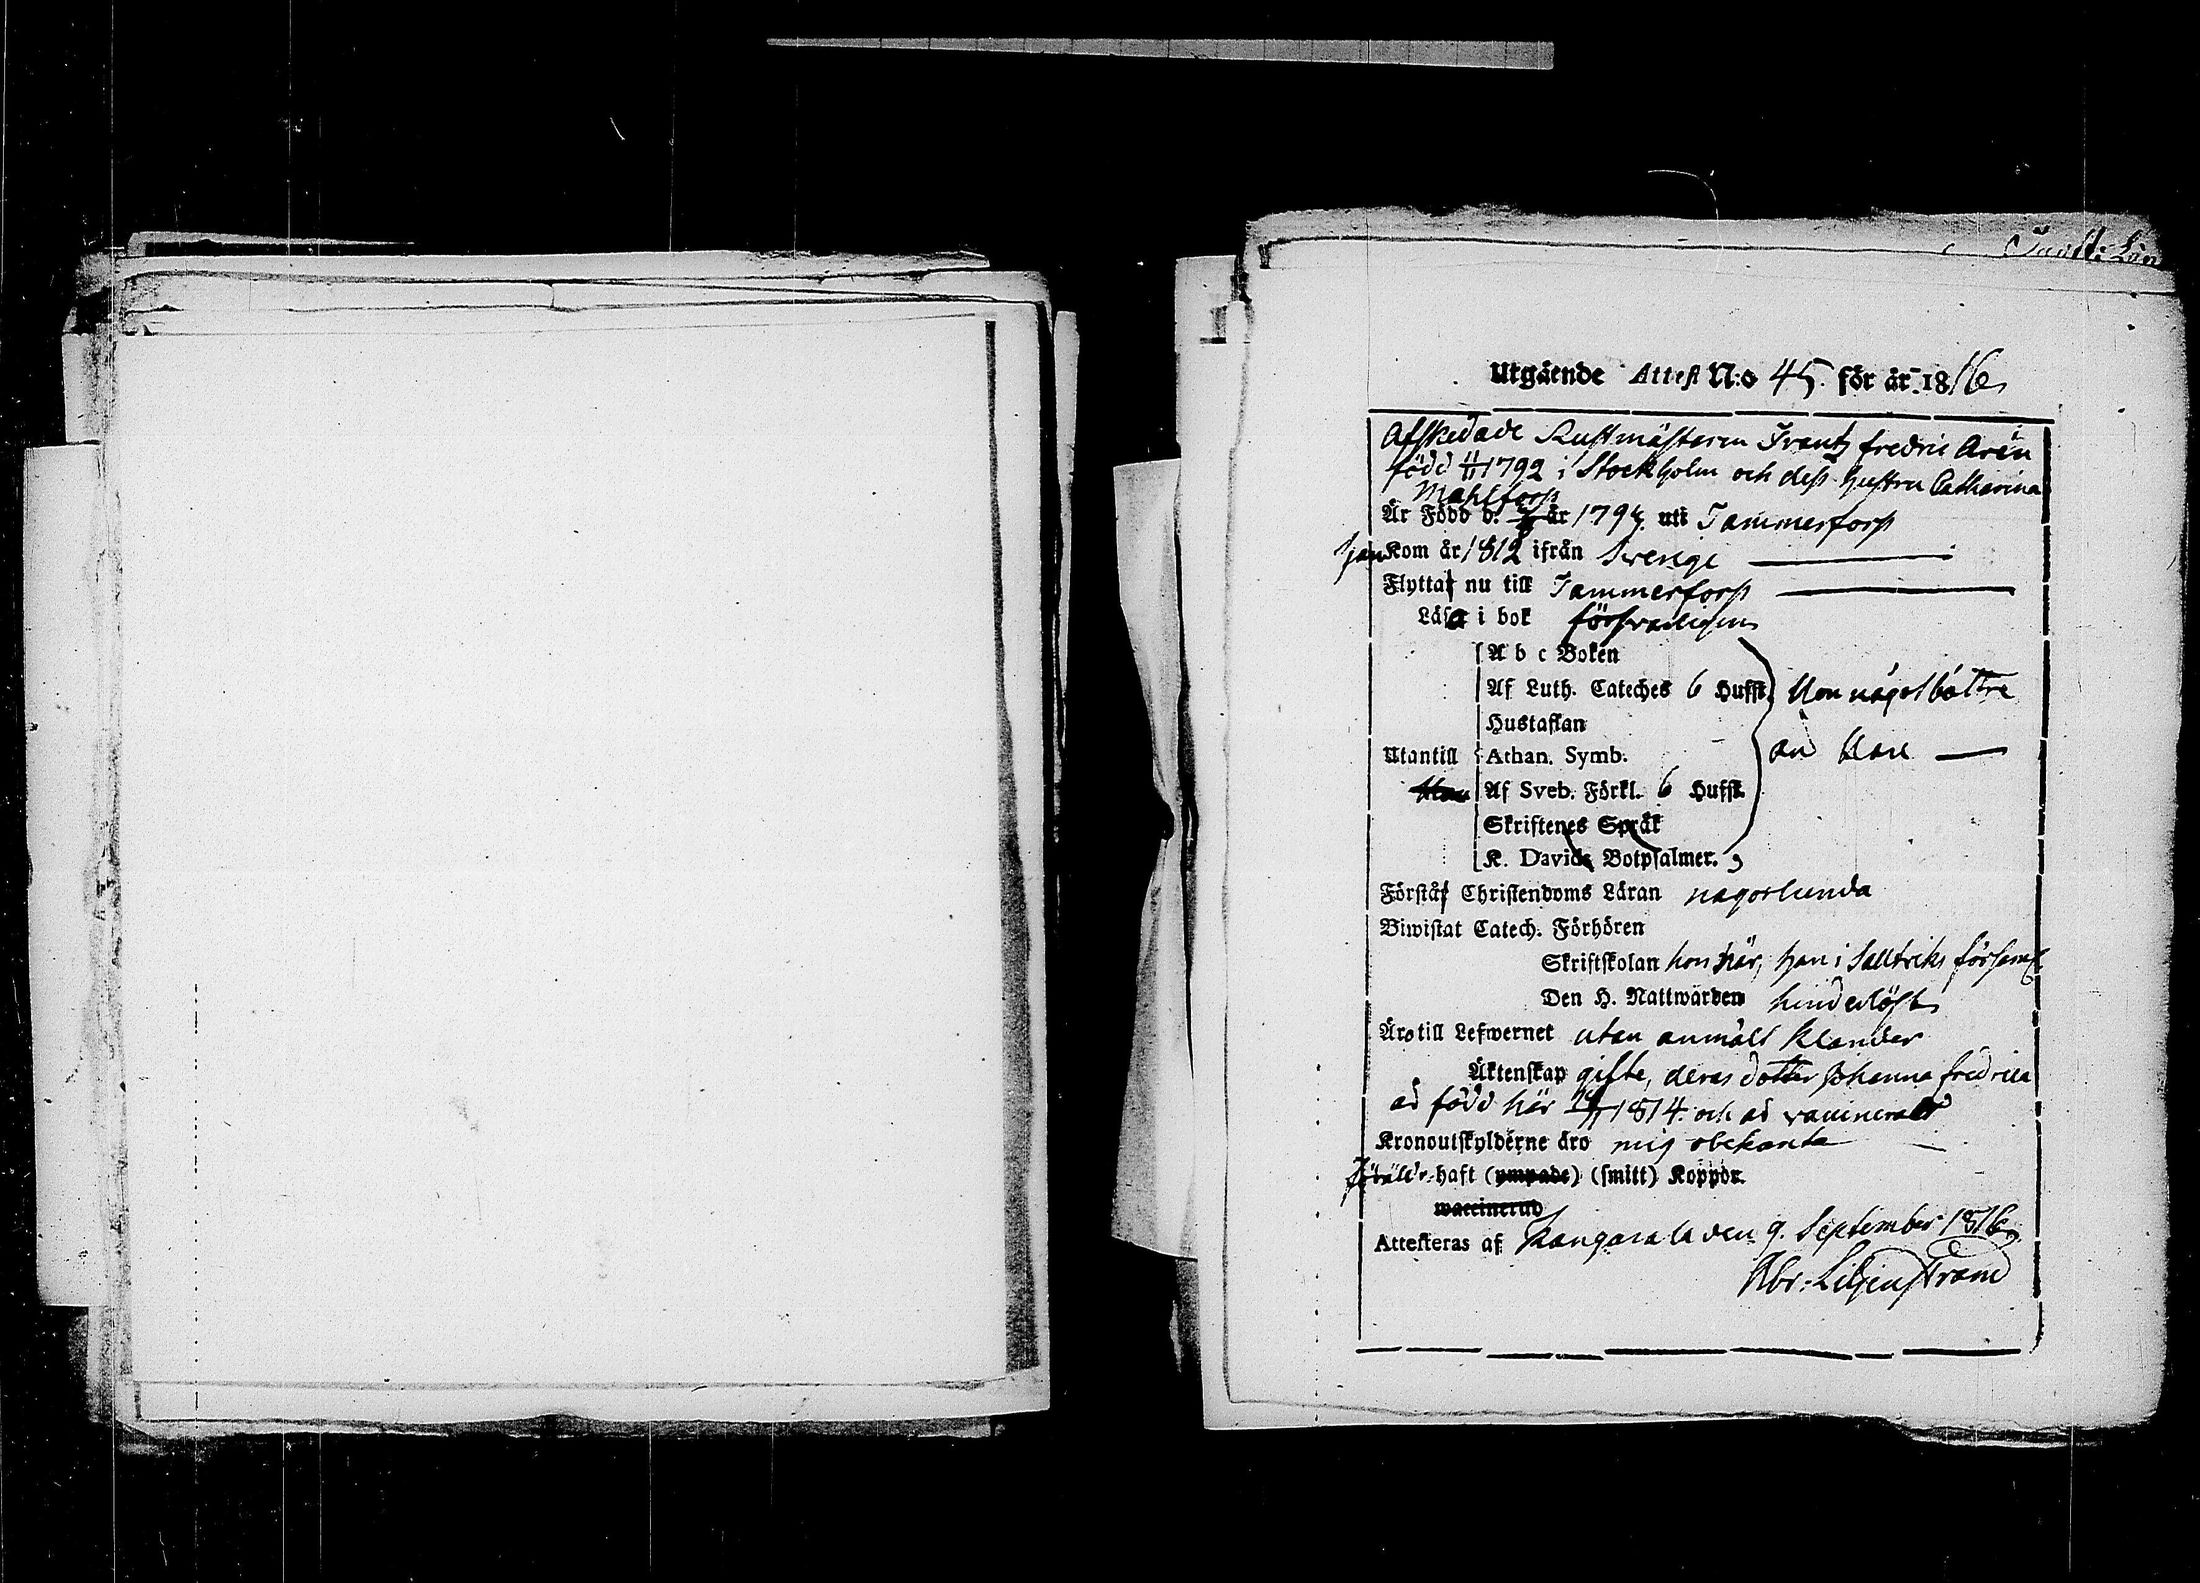 Utgående Attest N:o 45. för år 1816
Afskedade Rustmästaren Frantz Fredric Arén
född 1792 i Stockholm och dess hustru Catharina
Mahlfors
Är Född d. år 1794. uti Tammerfors
han Kom år 1812 ifrån Sverige
Flytta nu till Tammerfors
Läsa i bok försvarligen
A b c Boken
Af Luth. Cateches 6 Hufst. Hon något bättre
Hustaflan
Utantill Athan. Symb. än Han
Af Sveb. Förkl. 6 Hufst.
Skriftenes Språk
K. Davids Botpsalmer.
Förstå Christendoms Läran någorlunda
Biwistat Catech. Förhören
Skriftskolan hon här, han i församl.
Den H. Nattwarden hinderlöst
Äro till Lefwernet utan anmält klander
Äktenskap gifte, deras dotter Johanna Fredrica
är född här 1814. och är vaccinerad
Kronoutskylderne äro mig obekanta
Föräldr. haft (ympade) (smitt) Koppor.
waccinerad
Attesteras af Kangasala den 9. September 1816
Abr. Liljenstrand